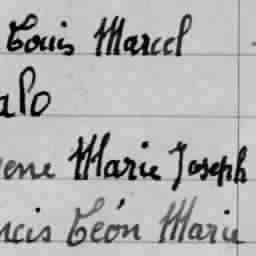 Louis Marcel
alo
ene Marie Joseph
ncis Léon Marie